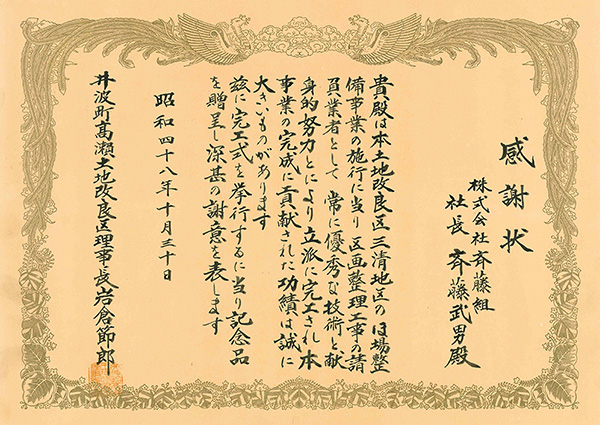 感謝状
株式会社斉藤組
社長 斉藤武男殿
貴殿は本土地改良区三清地区のほ場整
備事業の施行に当り区画整理工事の請
負業者として 常に優秀な技術と献
身的努力とにより立派に完工され 本
事業の完成に貢献された功績は誠に
大きいものがあります
茲に完工式を挙行するに当り記念品
を贈呈し深甚の謝意を表します
昭和四十八年十月三十日
井波町高瀬土地改良区理事長岩倉節郎